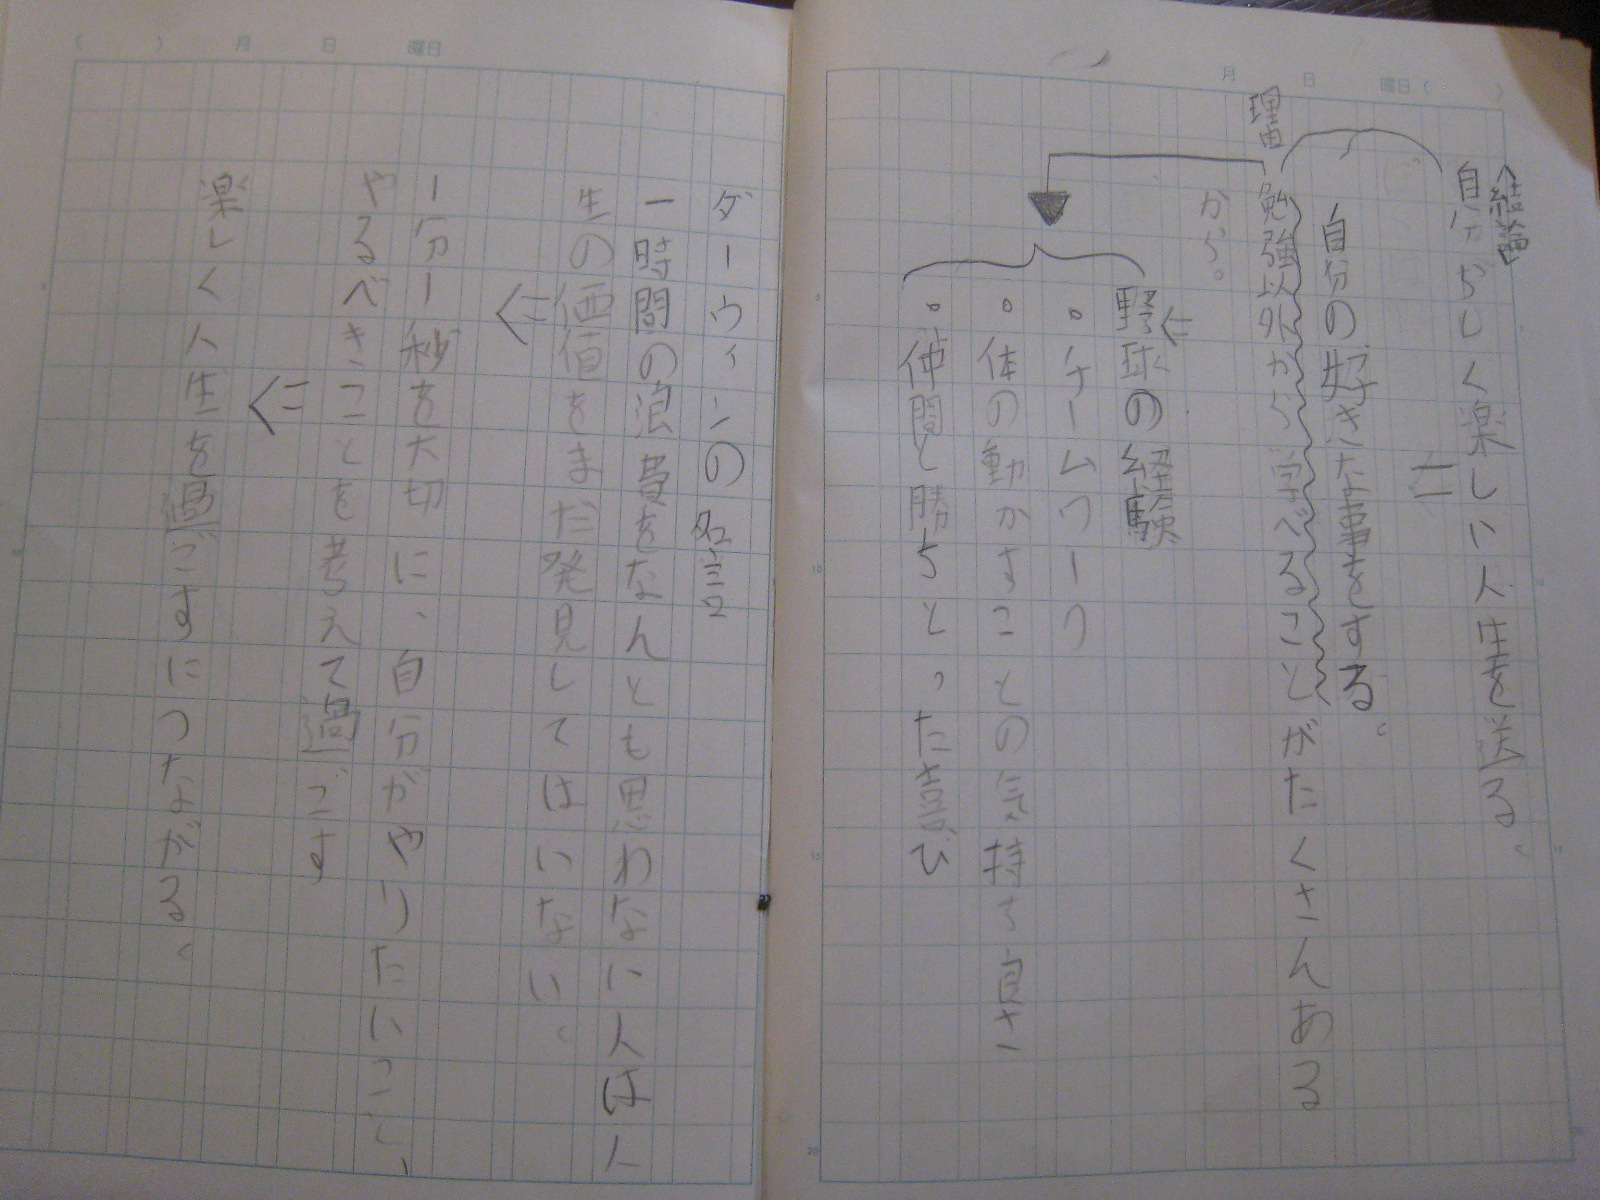 月 日 曜日( )
〈結論
自分らしく楽しい人生を送る。
=
自分の好きな事をする。
理由
勉強以外から学べることがたくさんある
から。
野球の経験
・チームワーク
・体の動かすことの気持ち良さ
・仲間と勝ちとった喜び
( ) 月 日 曜日
ダーウィンの名言
一時間の浪費をなんとも思わない人は人
生の価値をまだ発見してはいない。
1分1秒を大切に、自分がやりたいこと、
やるべきことを考えて過ごす
楽しく人生を過ごすにつながる。
5
10
15
20